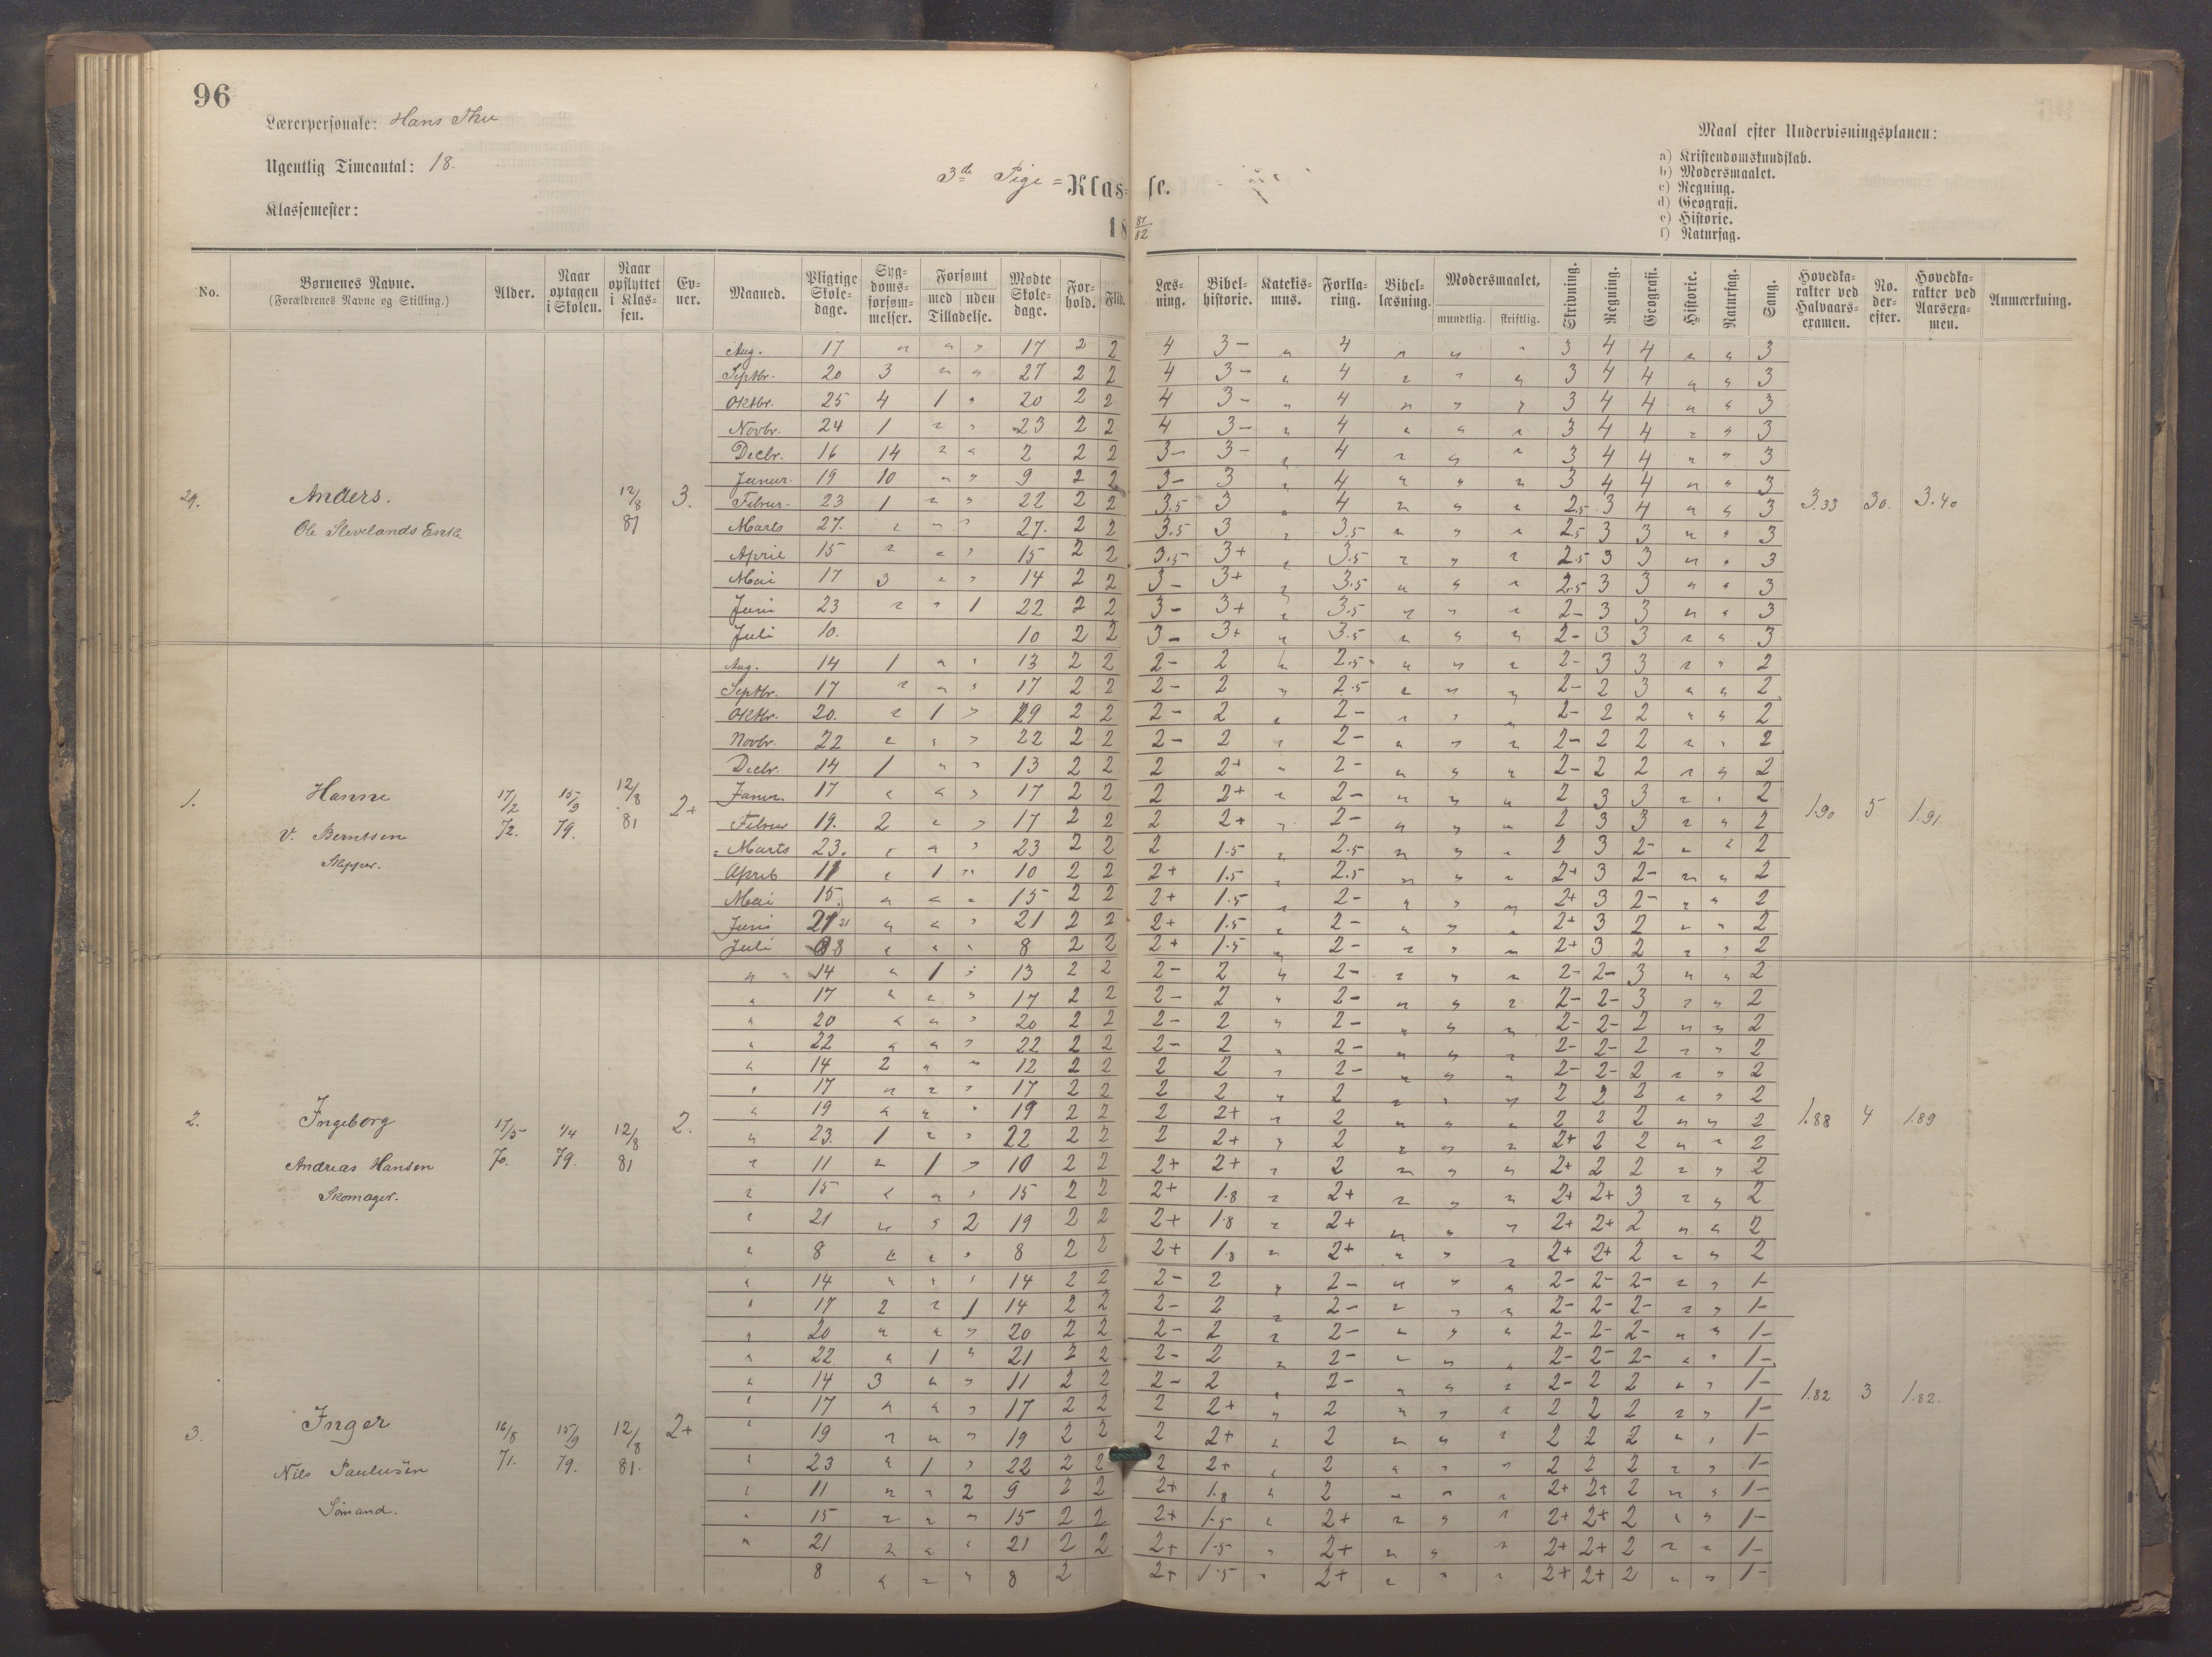 96
Lærerpersonale: Hans Thu
Ugentlig Timeantal: 18.
Klassemester:
3de Pige = Klasse.
18 81/82
Maal efter Undervisningsplanen:
a) Kristendomskundskab.
b) Modersmaalet.
c) Regning.
d) Geografi.
e) Historie.
f) Naturfag.
No. Børnenes Navne. (Forældrenes Navne og Stilling.) Alder. Naar optagen i Skolen. Naar opflyttet i Klassen. Evner. Maaned. Pligtige Skoledage. Sygdomsforsømmelser. Forsømt med uden Tilladelse. Mødte Skoledage. Forhold. Flid. Læsning. Bibelhistorie. Katekismus. Forklaring. Bibellæsning. Modersmaalet, mundtlig. skriftlig. Skrivning. Regning. Geografi. Historie. Naturfag. Sang. Hovedkarakter ved Halvaarsexamen. No. derefter. Hovedkarakter ved Aarsexamen. Anmærkning.
29. Anders. 12/8 81 3. 3.33 30. 3.40
Ole Slevelands Enke
Aug. 17 " " " 17 2 2 4 3- " 4 " " " 3 4 4 " " 3
Septbr. 20 3 " " 27 2 2 4 3- " 4 " " " 3 4 4 " " 3
Oktbr. 25 4 1 " 20 2 2 4 3- " 4 " " " 3 4 4 " " 3
Novbr. 24 1 " " 23 2 2 4 3- " 4 " " " 3 4 4 " " 3
Decbr. 16 14 " " 2 2 2 3- 3- " 4 " " " 3 4 4 " " 3
Januar. 19 10 " " 9 2 2 3- 3 " 4 " " " 3 4 4 " " 3
Februar. 23 1 " " 22 2 2 3.5 3 " 4 " " " 2.5 3 4 " " 3
Marts 27. " " " 27. 2 2 3.5 3 " 3.5 " " " 2.5 3 3 " " 3
April 15 " " " 15 2 2 3.5 3+ " 3.5 " " " 2.5 3 3 " " 3
Mai 17 3 " " 14 2 2 3- 3+ " 3.5 " " " 2.5 3 3 " " 3
Juni 23 " " 1 22 2 2 3- 3+ " 3.5 " " " 2- 3 3 " " 3
Juli 10. 10 2 2 3- 3+ " 3.5 " " " 2- 3 3 " " 3
1. Hanne 17/2 72. 15/9 79. 12/8 81 2+ 1.90 5 1.91
V. Berntsen
Skipper.
Aug. 14 1 " " 13 2 2 2- 2 " 2.5 " " " 2- 3 3 " " 2
Septbr. 17 " " " 17 2 2 2- 2 " 2.5 " " " 2- 2 3 " " 2
Oktbr. 20. " 1 " 19 2 2 2- 2 " 2- " " " 2- 2 2 " " 2
Novbr. 22 " " " 22 2 2 2- 2 " 2- " " " 2- 2 2 " " 2
Decbr. 14 1 " " 13 2 2 2 2+ " 2- " " " 2- 2 2 " " 2
Januar. 17 " " " 17 2 2 2 2+ " 2- " " " 2 3 3 " " 2
Februar 19. 2 " " 17 2 2 2 2+ " 2- " " " 2 3 3 " " 2
Marts 23. " " " 23 2 2 2 1.5 " 2.5 " " " 2 3 2- " " 2
April 11 " 1 " 10 2 2 2+ 1.5 " 2.5 " " " 2+ 3 2- " " 2
Mai 15. " " " 15 2 2 2+ 1.5 " 2- " " " 2+ 3 2- " " 2
Juni 21 21 " " " 21 2 2 2+ 1.5 " 2- " " " 2+ 3 2 " " 2
Juli 8 " " " 8 2 2 2+ 1.5 " 2- " " " 2+ 3 2 " " 2
2. Ingeborg 17/5 70. 1/4 79. 12/8 81 2. 1.88 4 1.89
Andreas Hansen
Skomager.
" 14 " 1 " 13 2 2 2- 2 " 2- " " " 2- 2- 3 " " 2
" 17 " " " 17 2 2 2- 2 " 2- " " " 2- 2- 3 " " 2
" 20 " " " 20 2 2 2- 2 " 2- " " " 2- 2- 2 " " 2
" 22 " " " 22 2 2 2- 2 " 2- " " " 2- 2- 2 " " 2
" 14 2 " " 12 2 2 2 2 " 2- " " " 2- 2- 2 " " 2
" 17 " " " 17 2 2 2 2 " 2 " " " 2 2 2 " " 2
" 19 " " " 19 2 2 2 2+ " 2 " " " 2 2 2 " " 2
" 23. 1 " " 22 2 2 2 2+ " 2 " " " 2+ 2 2 " " 2
" 11 " 1 " 10 2 2 2+ 2+ " 2 " " " 2+ 2 2 " " 2
" 15 " " " 15 2 2 2+ 1.8 " 2+ " " " 2+ 2+ 3 " " 2
" 21 " " 2 19 2 2 2+ 1.8 " 2+ " " " 2+ 2+ 2 " " 2
" 8 " " " 8 2 2 2+ 1.8 " 2+ " " " 2+ 2+ 2 " " 2
3. Inger 16/8 71. 15/9 79. 12/8 81. 2+ 1.82 3 1.82.
Nils Paulusen
Sømand.
" 14 " " " 14 2 2 2- 2 " 2- " " " 2- 2- 2- " " 1-
" 17 2 " 1 14 2 2 2- 2 " 2- " " " 2- 2- 2- " " 1-
" 20 " " " 20 2 2 2- 2 " 2- " " " 2- 2- 2- " " 1-
" 22. " 1 " 21 2 2 2- 2 " 2- " " " 2- 2- 2- " " 1-
" 14 3 " " 11 2 2 2- 2 " 2- " " " 2- 2 2 " " 1-
" 17 " " " 17 2 2 2 2+ " 2 " " " 2 2 2 " " 1-
" 19 " " " 19 2 2 2 2+ " 2 " " " 2 2 2 " " 1-
" 23 " 1 " 22 2 2 2 2+ " 2 " " " 2 2 2 " " 1-
" 11 " " 2 9 2 2 2+ 1.8 " 2 " " " 2+ 2+ 2 " " 1-
" 15 " " " 15 2 2 2+ 1.5 " 2+ " " " 2+ 2+ 2 " " 1-
" 21 " " " 21 2 2 2+ 1.5 " 2+ " " " 2+ 2+ 2 " " 1-
8 " " " 8 2 2+ 1.5 " 2+ " " " 2+ 2+ 2 " " 1-